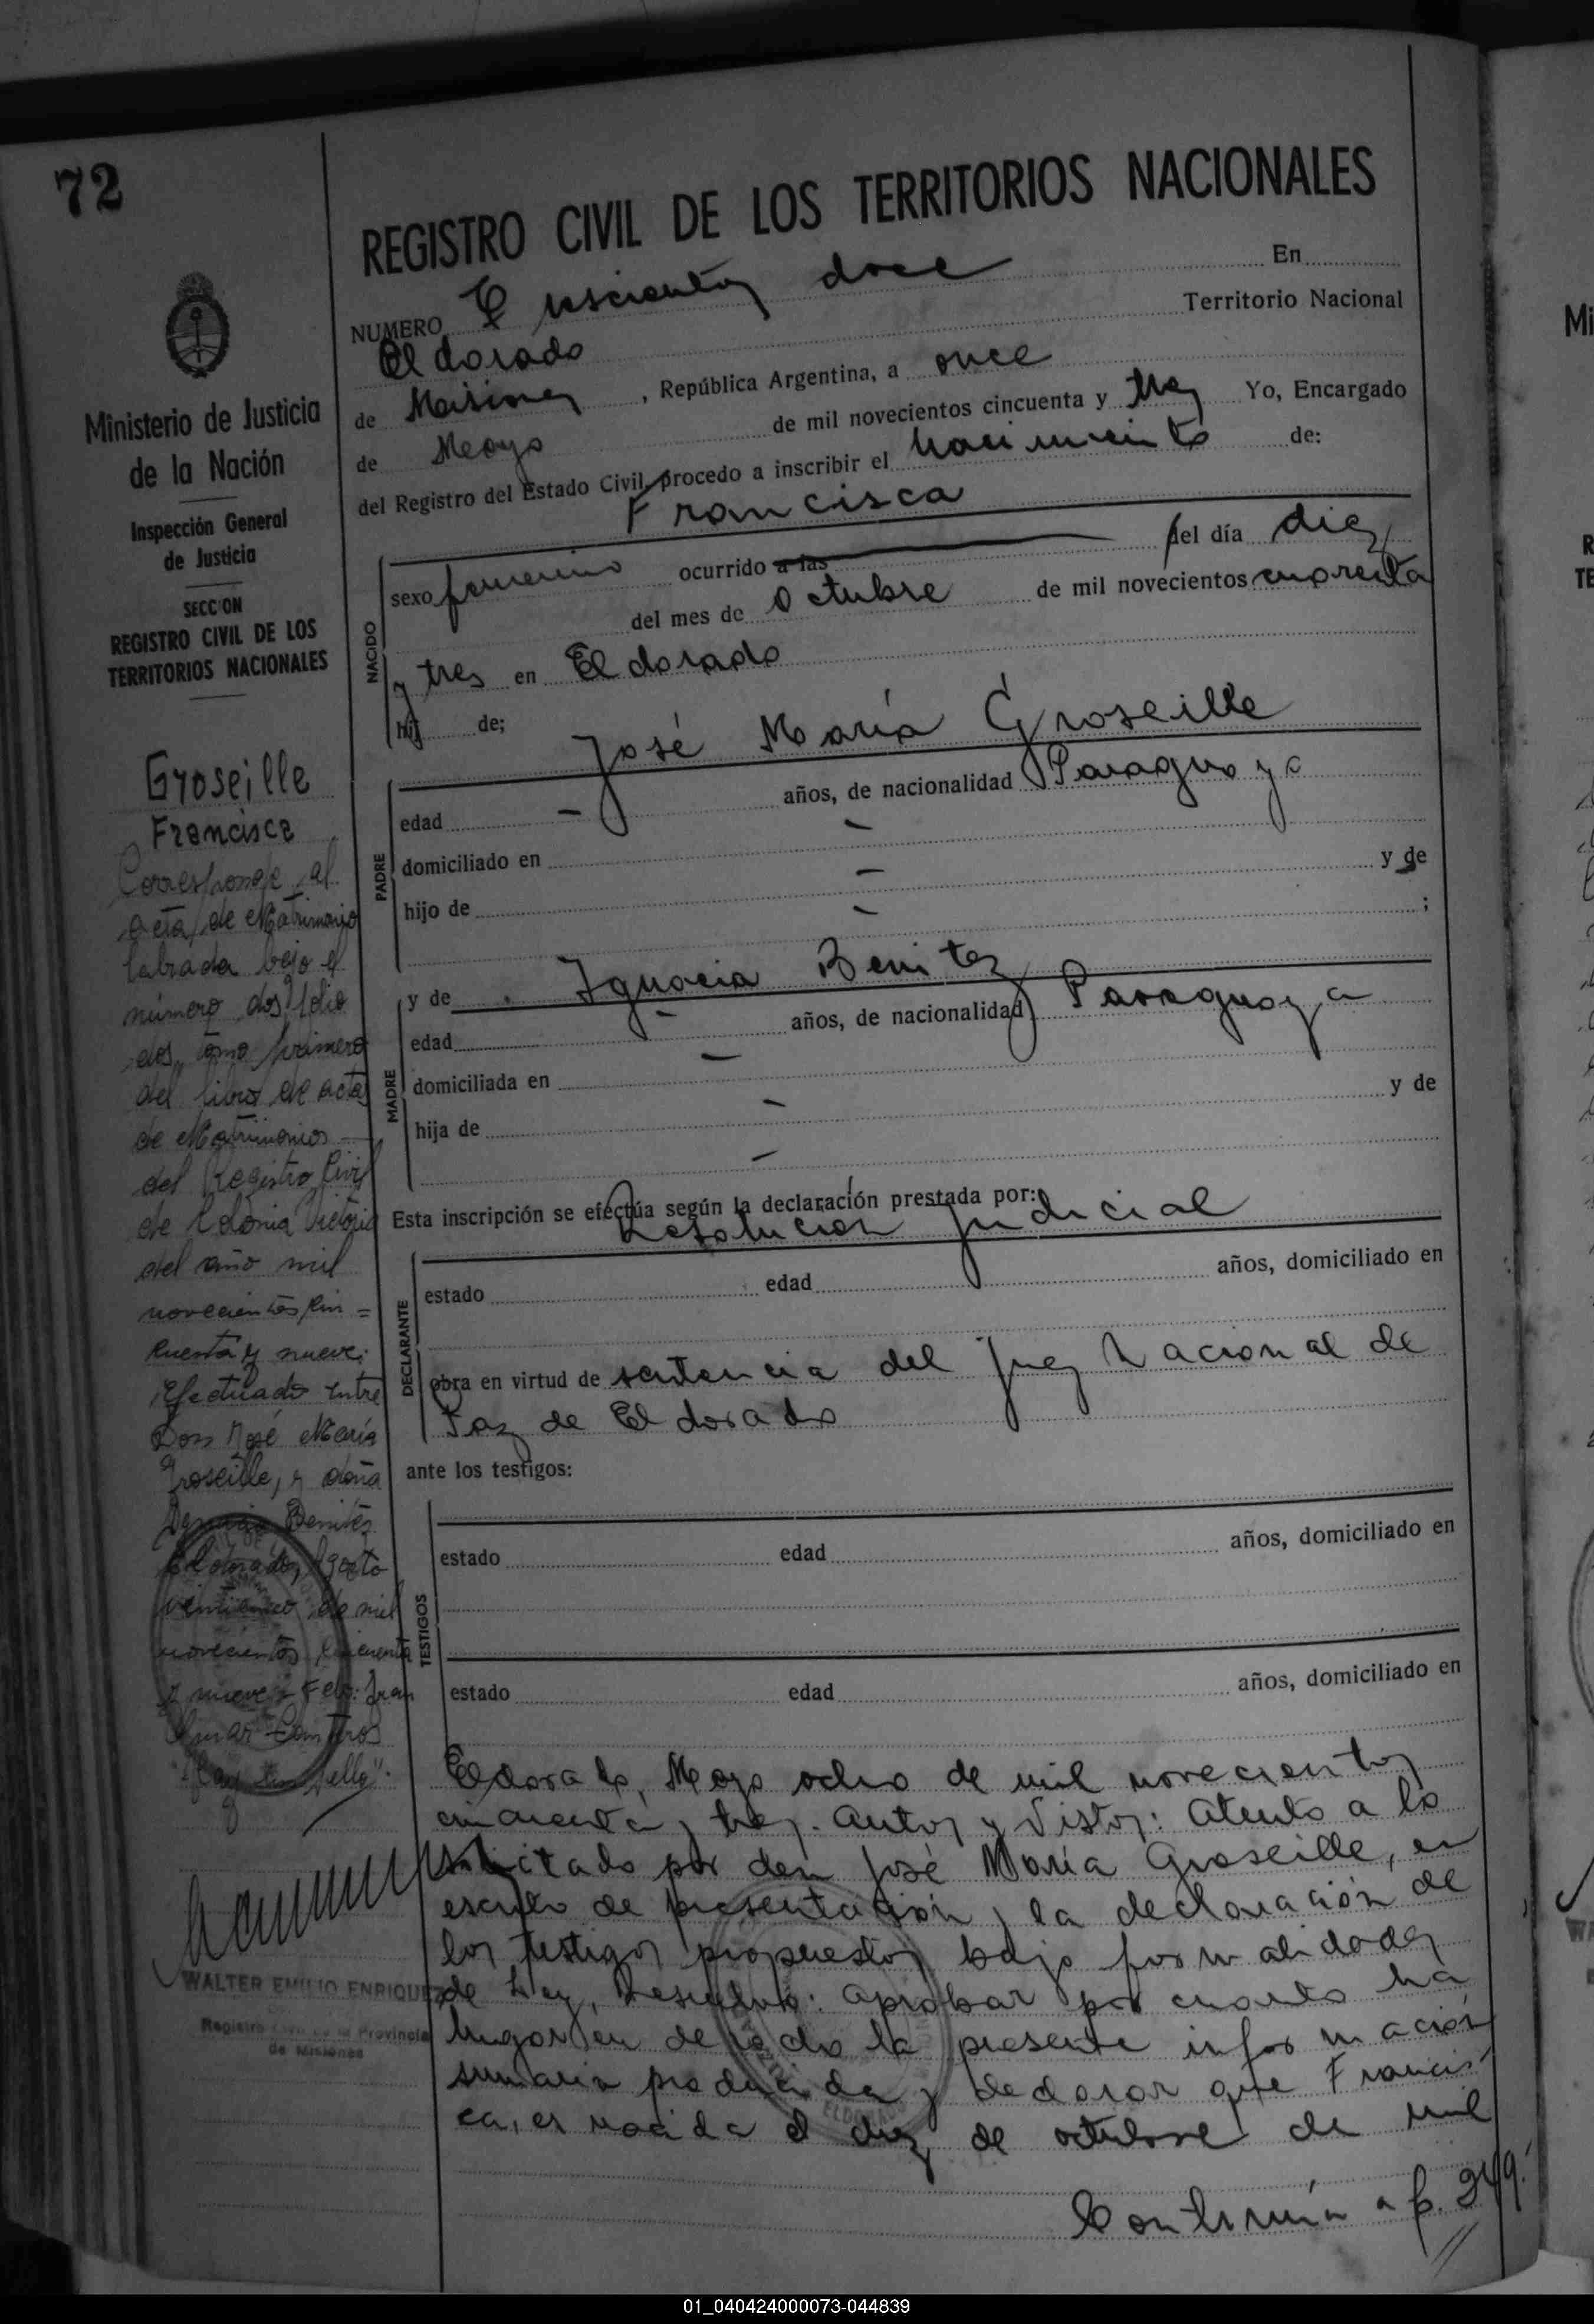 72
REGISTRO CIVIL DE LOS TERRITORIOS NACIONALES
NUMERO doce En
Eldorado Territorio Nacional
de Misiones, República Argentina, a once
de Mayo de mil novecientos cincuenta y tres Yo, Encargado
del Registro del Estado Civil, procedo a inscribir el Nacimiento de:
Francisca
NACIDO
sexo femenino ocurrido a las del día diez
del mes de Octubre de mil novecientos cuarenta
y tres en Eldorado
hij de;
José María Groseille
PADRE
edad - años, de nacionalidad Paraguaya
domiciliado en -
hijo de - y de
- ;
y de Ignacia Benitez
MADRE
edad - años, de nacionalidad Paraguaya
domiciliada en -
hija de - y de
-
Esta inscripción se efectúa según la declaración prestada por:
Resolución Judicial
DECLARANTE
estado edad años, domiciliado en
obra en virtud de sentencia del Juez Nacional de
Paz de Eldorado
ante los testigos:
TESTIGOS
estado edad años, domiciliado en
estado edad años, domiciliado en
Eldorado, Mayo ocho de mil novecientos
cincuenta y tres. Autos y Vistos: Atento a lo
solicitado por don José María Groseille, en
escrito de presentación y la declaración de
los testigos propuestos bajo formalidades
de Ley, Resuelvo: Aprobar por cuanto ha
lugar en derecho la presente información
sumaria producida y declarar que Francis-
ca, es nacida el diez de octubre de mil
Continúa a f. 249.
Ministerio de Justicia
de la Nación
Inspección General
de Justicia
SECCION
REGISTRO CIVIL DE LOS
TERRITORIOS NACIONALES
Groseille
Francisca
Corresponde al
acta de Matrimonio
labrada bajo el
número dos, folio
dos, tomo primero
del libro de actas
de Matrimonios
del Registro Civil
de Colonia Victoria
del año mil
novecientos cin=
cuenta y nueve;
Efectuado entre
Don José María
Groseille, y doña
Benítes
Eldorado, Agosto
de mil
novecientos cincuenta
y nueve
WALTER EMILIO ENRIQUEZ
Registro Civil de la Provincia
de Misiones
ELDORADO
01_040424000073-044839